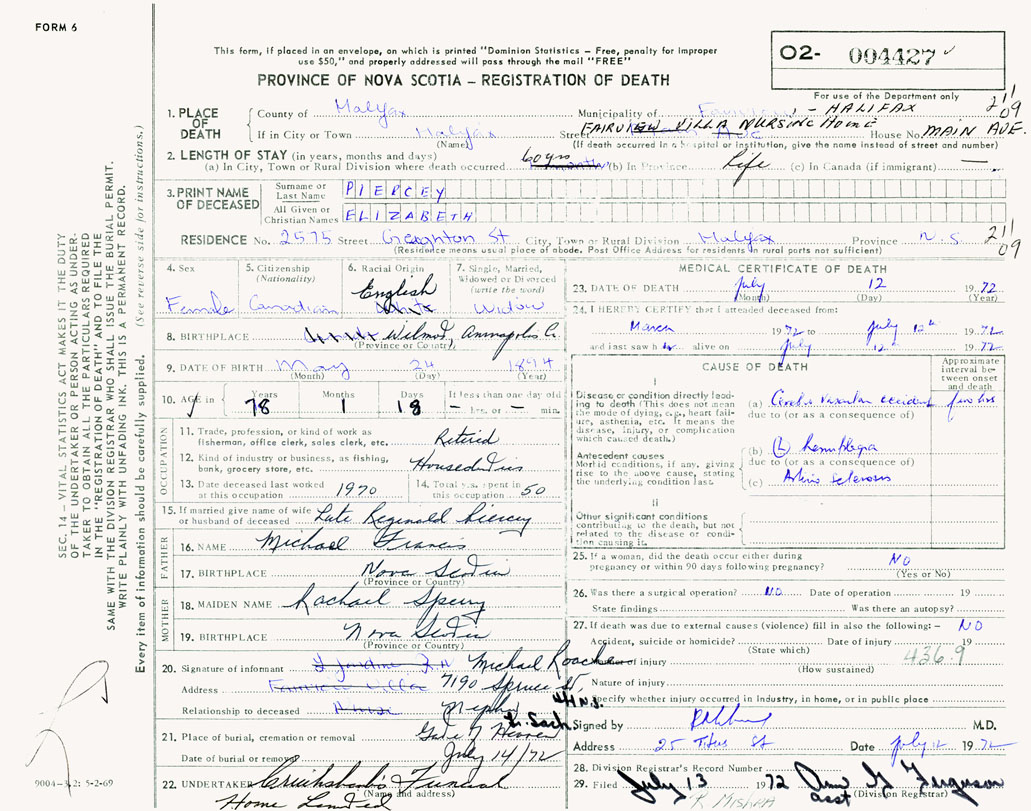 FORM 6
This form, if placed in an envelope, on which is printed "Dominion Statistics – Free, penalty for improper
use $50," and properly addressed will pass through the mail "FREE"
O2- 004427
PROVINCE OF NOVA SCOTIA – REGISTRATION OF DEATH
For use of the Department only
211
09
1. PLACE OF DEATH
County of Halifax Municipality of - HALIFAX
If in City or Town Halifax Street FAIRVIEW VILLA NURSING HOME House No. MAIN AVE.
(Name) (If death occurred in a hospital or institution, give the name instead of street and number)
2. LENGTH OF STAY (in years, months and days)
(a) In City, Town or Rural Division where death occurred 60 yrs (b) In Province Life (c) In Canada (if immigrant) —
3. PRINT NAME OF DECEASED
Surname or Last Name PIERCEY
All Given or Christian Names ELIZABETH
RESIDENCE No. 2575 Street Creighton St City, Town or Rural Division Halifax Province N.S.
(Residence means usual place of abode. Post Office Address for residents in rural parts not sufficient)
211
09
4. Sex Female
5. Citizenship (Nationality) Canadian
6. Racial Origin English White
7. Single, Married, Widowed or Divorced (write the word) Widow
8. BIRTHPLACE Wilmot, Annapolis Co.
(Province or Country)
9. DATE OF BIRTH May 24 1894
(Month) (Day) (Year)
10. AGE in Years 78 Months 1 Days 18 If less than one day old – hrs. or – min.
OCCUPATION
11. Trade, profession, or kind of work as fisherman, office clerk, sales clerk, etc. Retired
12. Kind of industry or business, as fishing, bank, grocery store, etc. Houseduties
13. Date deceased last worked at this occupation 1970
14. Total yrs. spent in this occupation 50
15. If married give name of wife or husband of deceased Late Reginald Piercey
FATHER
16. NAME Michael Francis
17. BIRTHPLACE Nova Scotia
(Province or Country)
MOTHER
18. MAIDEN NAME Rachael Sperry
19. BIRTHPLACE Nova Scotia
(Province or Country)
20. Signature of informant Michael Roache
Address Fairview Villa 7190 Spruce St.
Hfx N.S.
Relationship to deceased Nurse Nephew
21. Place of burial, cremation or removal Gate of Heaven L. Sack
Date of burial or removal July 14/72
22. UNDERTAKER Cruikshank's Funeral
(Name and address)
Home Limited
MEDICAL CERTIFICATE OF DEATH
23. DATE OF DEATH July 12 1972
(Month) (Day) (Year)
24. I HEREBY CERTIFY that I attended deceased from:
March 1972 to July 12th 1972
and last saw h alive on July 12th 1972
CAUSE OF DEATH
Approximate interval between onset and death
I
Disease or condition directly leading to death (This does not mean the mode of dying, e.g., heart failure, asthenia, etc. It means the disease, injury, or complication which caused death.)
(a) Cerebro vascular accident few hrs
due to (or as a consequence of)
Antecedent causes
Morbid conditions, if any, giving rise to the above cause, stating the underlying condition last.
(b) (L) hemiplegia
due to (or as a consequence of)
(c) Arterio sclerosis
II
Other significant conditions contributing to the death, but not related to the disease or condition causing it.
25. If a woman, did the death occur either during pregnancy or within 90 days following pregnancy? NO
(Yes or No)
26. Was there a surgical operation? NO Date of operation 19
State findings Was there an autopsy?
27. If death was due to external causes (violence) fill in also the following:– NO
Accident, suicide or homicide? Date of injury 19
(State which)
436.9
Manner of injury
(How sustained)
Nature of injury
Specify whether injury occurred in Industry, in home, or in public place
Signed by M.D.
Address 25 Titus St Date July 12 1972
28. Division Registrar's Record Number
29. Filed July 13 1972 Ann G Ferguson
asst (Division Registrar)
SEC. 14 – VITAL STATISTICS ACT MAKES IT THE DUTY
OF THE UNDERTAKER OR PERSON ACTING AS UNDER-
TAKER TO OBTAIN ALL THE PARTICULARS REQUIRED
IN THE "REGISTRATION OF DEATH" AND TO FILE THE
SAME WITH THE DIVISION REGISTRAR WHO SHALL ISSUE THE BURIAL PERMIT.
WRITE PLAINLY WITH UNFADING INK. THIS IS A PERMANENT RECORD.
Every item of information should be carefully supplied. (See reverse side for instructions.)
9004-3.2: 5-2-69